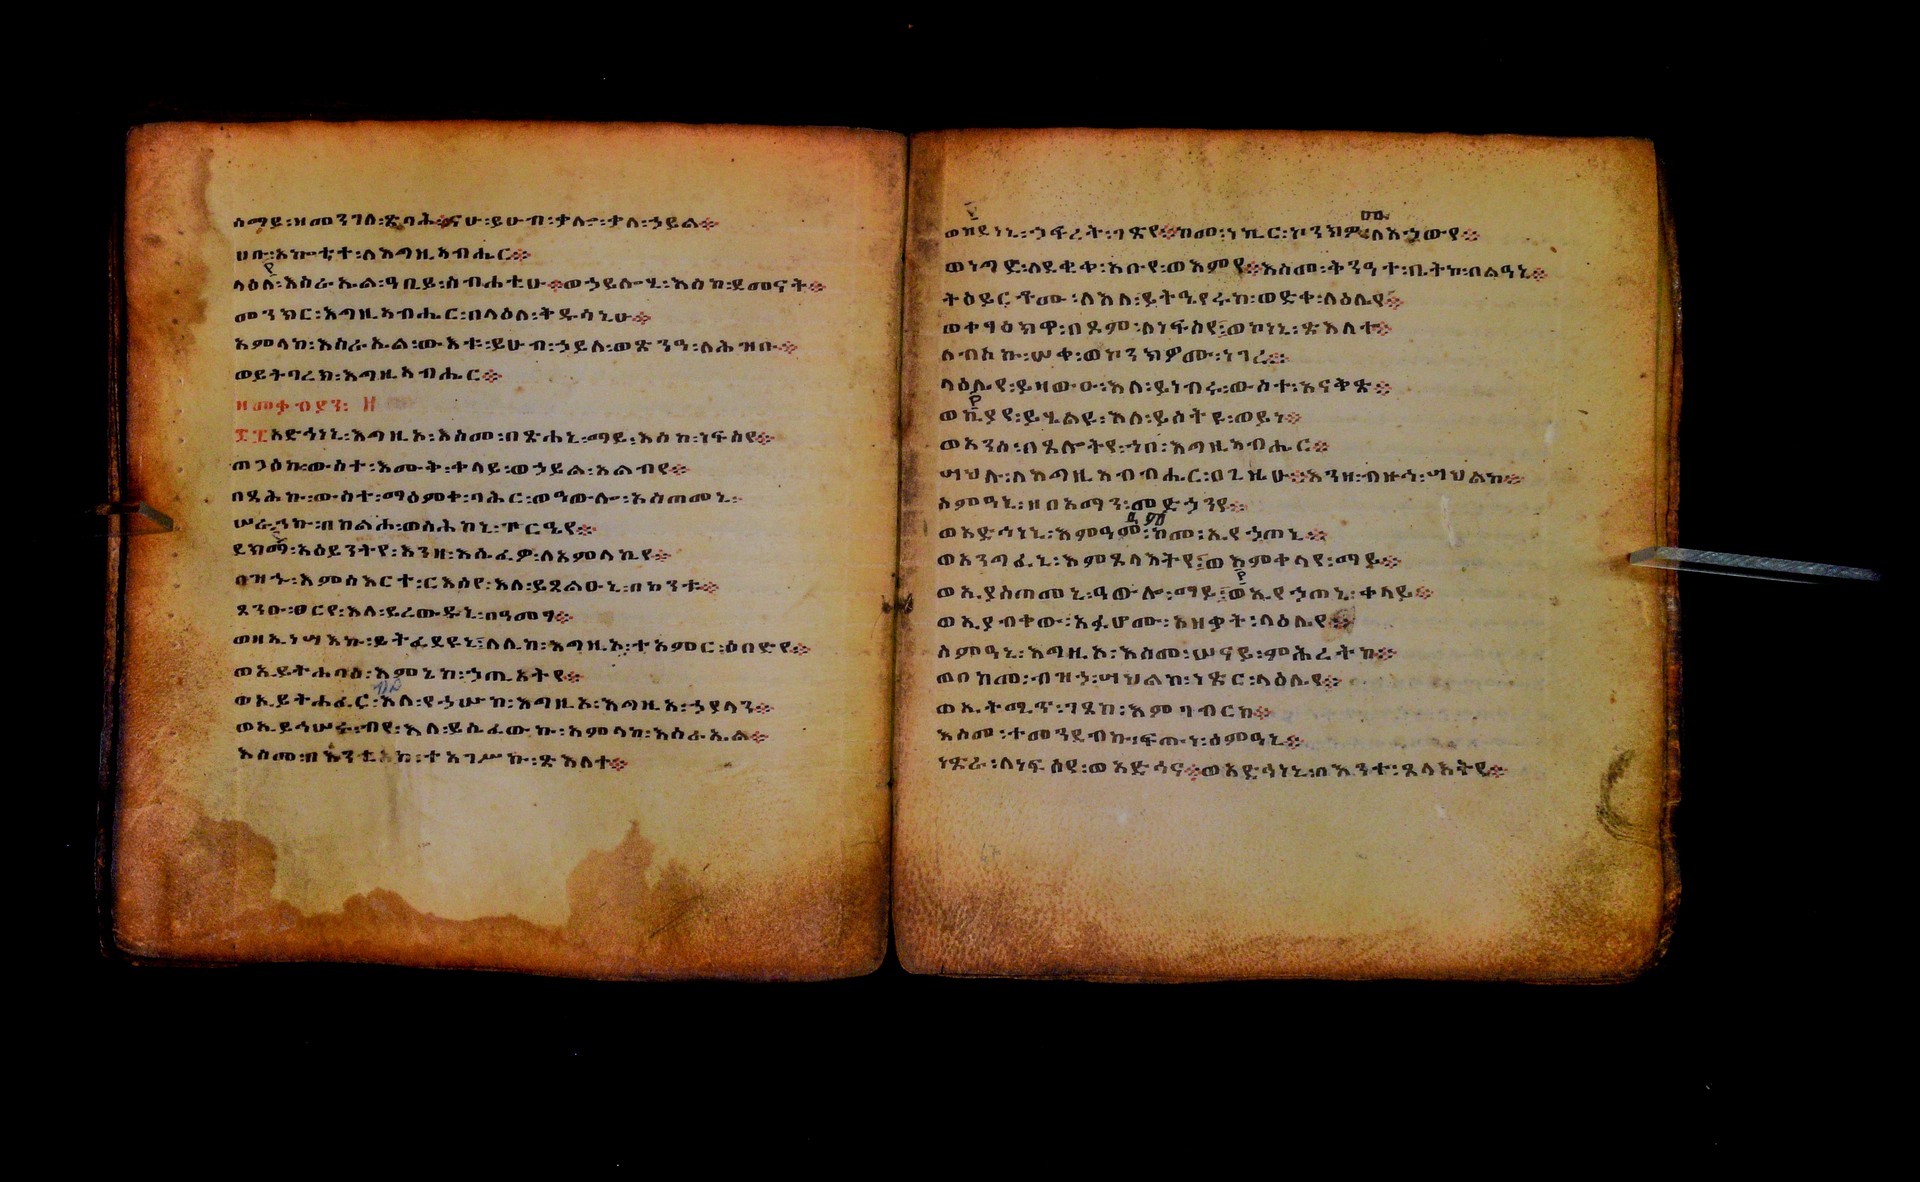 ሰማይ፡ዘመንገለ፡ጽባሕ፨ናሁ፡ይሁብ፡ቃሎ፡ቃለ፡ኃይል፨
ሀቡ፡አኰቴተ፡ለእግዚአብሔር፨
ላዕለ፡እስራኤል፡ዓቢይ፡ስብሐቲሁ፨ወኃይሉሂ፡እስከ፡ደመናት፨
መንክር፡እግዚአብሔር፡በላዕለ፡ቅዱሳኒሁ፨
አምላከ፡እስራኤል፡ውእቱ፡ይሁብ፡ኃይለ፡ወጽንዓ፡ለሕዝቡ፨
ወይትባረክ፡እግዚአብሔር፨
ዘመቃብያን፡
፷፰አድኅነኒ፡እግዚኦ፡እስመ፡በጽሐኒ፡ማይ፡እስከ፡ነፍስየ፨
ጠጋዕኩ፡ውስተ፡እሙቅ፡ቀላይ፡ወኃይል፡አልብየ፨
በጻሕኩ፡ውስተ፡ማዕምቀ፡ባሕር፡ወዓውሎ፡አስጠመኒ፡
ሠራኅኩ፡በከልሖ፡ወስሕከኒ፡ጕርዔየ፨
ደክማ፡አዕይንትየ፡እንዘ፡እሴፈዎ፡ለአምላኪየ፨
በዝኁ፡እምስእርተ፡ርእስየ፡እለ፡ይጸልዑኒ፡በከንቱ፨
ጸንዑ፡ፀርየ፡እለ፡ይረውዱኒ፡በዓመፃ፨
ወዘኢነሣእኩ፡ይትፈደዩኒ፤ለሊከ፡እግዚኦ፡ተአምር፡ዕበድየ፨
ወኢይትሐባእ፡እምኔከ፡ኃጢአትየ፨
ወኢይትሐፈር፡እለ፡የኀሡከ፡እግዚኦ፡እግዚአ፡ኃያላን፨
ወኢይኅሠሩ፡ብየ፡እለ፡ይሴፈውኩ፡አምላከ፡እስራኤል፨
እስመ፡በእንቲአከ፡ተአገሥኩ፡ጽእለተ፨
ወከደነኒ፡ኃፍረት፡ገጽየ፨ከመ፡ነኪር፡ኮንክዎሙ፡ለአኃውየ፨
ወነግድ፡ለደቂቀ፡አቡየ፡ወእምየ፨እስመ፡ቅንዓተ፡ቤትከ፡በልዓኒ፨
ትዕይርቶሙ፡ለእለ፡ይትዔየሩከ፡ወድቀ፡ላዕሌየ፨
ወቀፃዕክዋ፡በጾም፡ለነፍስየ፤ወኮነኒ፡ጽእለተ፨
ለብስኩ፡ሠቀ፡ወኮንክዎሙ፡ነገረ፨
ላዕሌየ፡ይዛውዑ፡እለ፡ይነብሩ፡ውስተ፡አናቅጽ፨
ወኪያየ፡ይሄልዩ፡እለ፡ይሰትዩ፡ወይነ፨
ወአንሰ፡በጸሎትየ፡ኀበ፡እግዚአብሔር፨
ሣህሉ፡ለእግዚአብሔር፡በጊዜሁ፨እንዘ፡ብዙኅ፡ሣህልከ፨
ስምዓኒ፡ዘበአማን፡መድኃንየ፨
ወአድኅነኒ፡እምዓምዓም፡ከመ፡ኢየኃጠኒ፨
ወአንግፈኒ፡እምጸላእትየ፤ወእምቀላየ፡ማይ፨
ወኢያስጠመኒ፡ዓውሎ፡ማይ፤ወኢየኃጠኒ፡ቀላይ፨
ወኢያብቀው፡አፈሆሙ፡አዘቃት፡ላዕሌየ፨
ስምዓኒ፡እግዚኦ፡እስመ፡ሠናይ፡ምሕረትከ፨
ወበከመ፡ብዝኃ፡ሣህልከ፡ነጽር፡ላዕሌየ፨
ወኢትሚጥ፡ገጸከ፡እምገብርከ፨
እስመ፡ተመንደብኩ፡ፍጡነ፡ስምዓኒ፨
ነጽራ፡ለነፍስየ፡ወአድኅና፨ወአድኅነኒ፡በእንተ፡ጸላእትየ፨